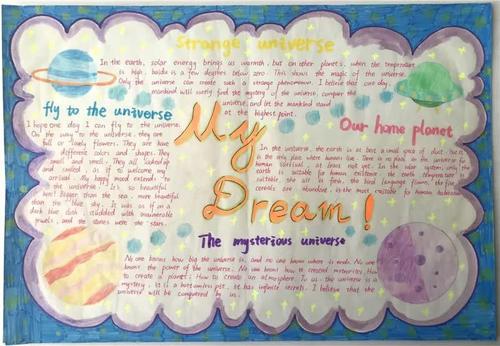 strange universe
In the earth, solar energy brings us warmth, but on other planets, when the temperature
is high, beside is a few degrees below zero. This shows the magic of the universe.
Only the universe can create such a strange phenomenon. I believe that one day,
mankind will surely find the mystery of the universe, conquer the
universe, and let the mankind stand
at the highest point.
fly to the universe
I hope one day I can fly to the universe.
On the way to the universe, they are
full of lovely flowers. They are have
different colors and shapes. They
small and smell. They all looked up
and smiled, as if to welcome my
arrival. My happy mood extend
to the universe. It's so beautiful
here! Bigger than the sea, more beautiful
than the blue sky. It was as if on a
dark blue cloth, studded with innumerable
jewels, and the stones were the stars.
My
Dream!
Our home planet
In the universe, the earth is at best a small speck of dust, but it
is the only place where humans live. There is no place in the universe for
human survival, at least not yet. In the solar system, only the
earth is suitable for human existence, the earth temperature is
suitable, the air is fresh, the bird language flowers, the five
cereals are abundant, is the most suitable for human habitation
The mysterious universe
No one knows how big the universe is, and no one knows where is ends. No one
knows the power of the universe. No one knows how to created meteorites, How
to create a planet, How to create an atmosphere. To us, the universe is a
mystery, it is a bottomless pit, it has infinite secrets. I believe that the
universe will be conquered by us.